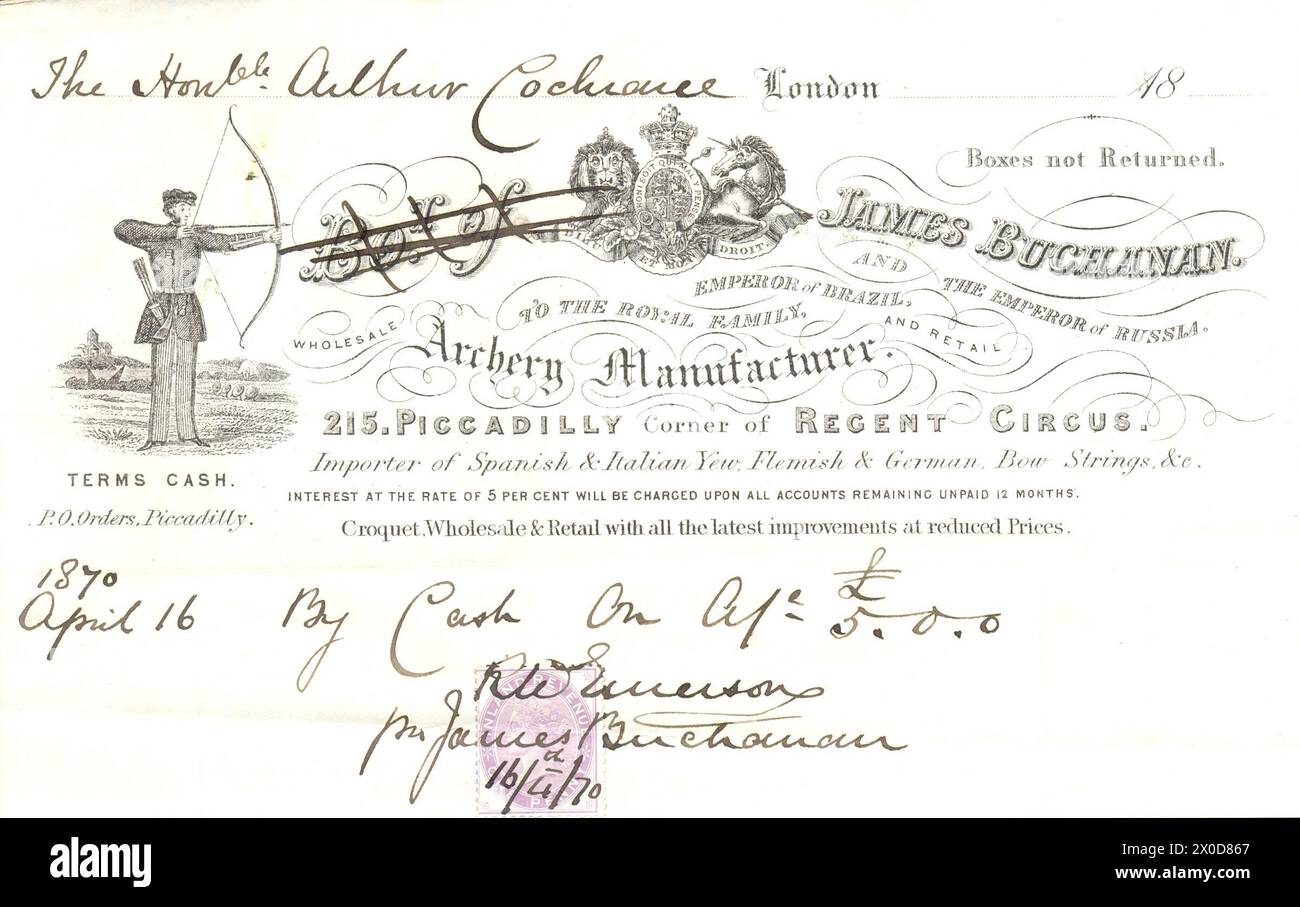 The Honble. Arthur Cochrane London 18
Boxes not Returned.
Bot. of JAMES BUCHANAN.
HONI SOIT QUI MAL Y PENSE
DIEU ET MON DROIT.
WHOLESALE TO THE ROYAL FAMILY, EMPEROR of BRAZIL, AND THE EMPEROR of RUSSIA.
AND RETAIL
Archery Manufacturer.
215. PICCADILLY Corner of REGENT CIRCUS.
Importer of Spanish & Italian Yew, Flemish & German, Bow Strings, &c.
TERMS CASH.
INTEREST AT THE RATE OF 5 PER CENT WILL BE CHARGED UPON ALL ACCOUNTS REMAINING UNPAID 12 MONTHS.
P.O. Orders, Piccadilly.
Croquet, Wholesale & Retail with all the latest improvements at reduced Prices.
1870 £
April 16 By Cash On A/c 5.0.0
INLAND REVENUE
Emerson
pr James Buchanan
16/4th/70
PENNY
alamy
Image ID: 2X0D867
www.alamy.com